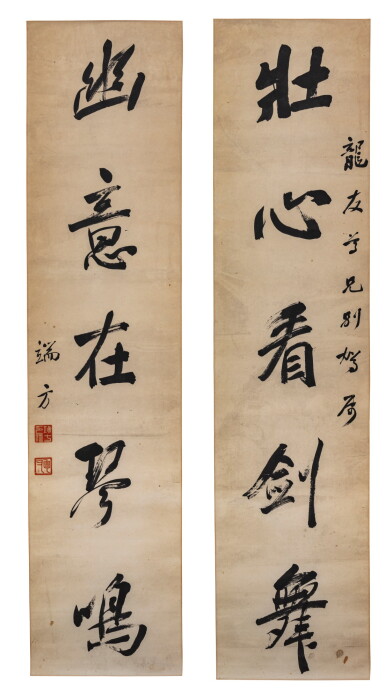 龍友尊兄別駕屬
壯心看劍舞
幽意在琴鳴
端方